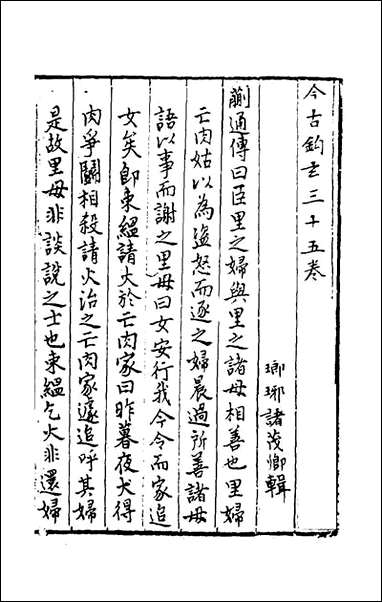 今古鈎玄三十五卷
瑯琊諸茂卿輯
蒯通傳曰臣里之婦與里之諸母相善也里婦
亡肉姑以為盗怒而逐之婦晨過所善諸母
語以事而謝之里母曰女安行我今令而家追
女矣即束緼請火於亡肉家曰昨暮夜犬得
肉爭鬭相殺請火治之亡肉家遽追呼其婦
是故里母非談說之士也束緼乞火非還婦